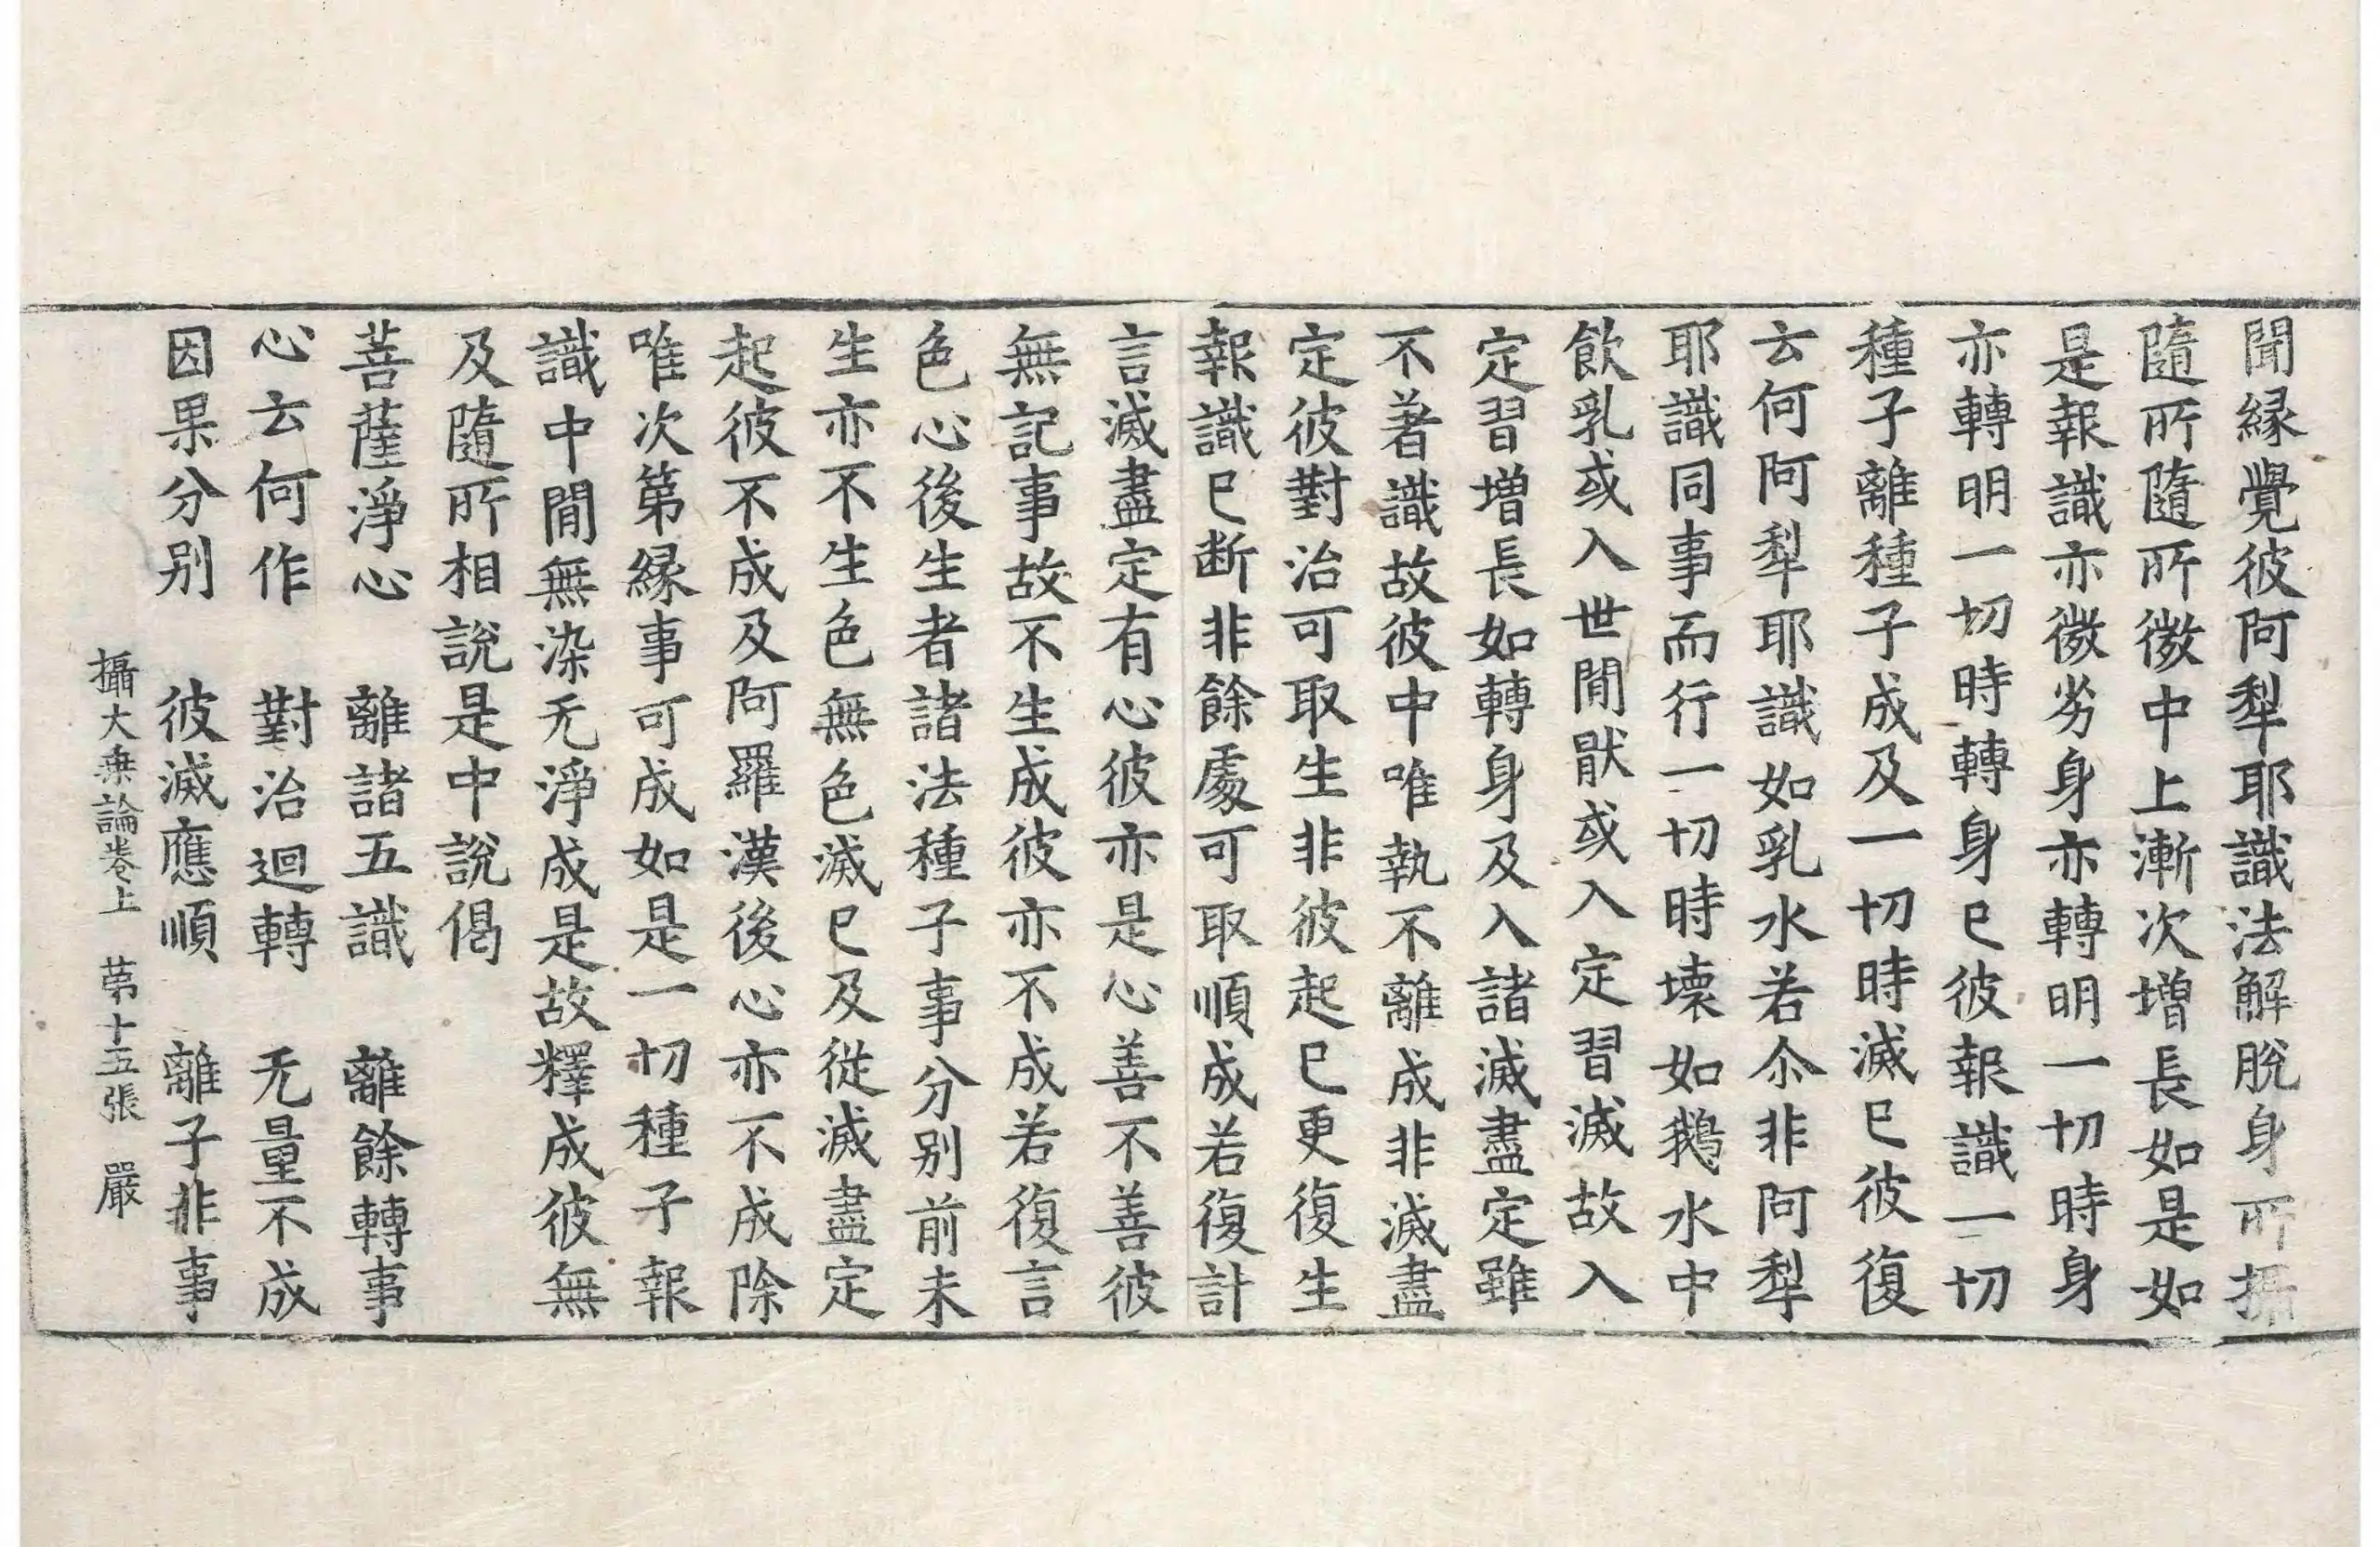 聞縁覺彼阿犁耶識法解脫身所攝
隨所隨所微中上漸次增長如是如
是報識亦微劣身亦轉明一切時身
亦轉明一切時轉身已彼報識一切
種子離種子成及一切時滅已彼復
云何阿犁耶識如乳水若尒非阿犁
耶識同事而行一切時壊如鵝水中
飲乳或入世閒猒或入定習滅故入
定習增長如轉身及入諸滅盡定雖
不著識故彼中唯執不離成非滅盡
定彼對治可取生非彼起已更復生
報識已断非餘處可取順成若復計
言滅盡定有心彼亦是心善不善彼
無記事故不生成彼亦不成若復言
色心後生者諸法種子事分别前未
生亦不生色無色滅已及從滅盡定
起彼不成及阿羅漢後心亦不成除
唯次第縁事可成如是一切種子報
識中閒無染无淨成是故釋成彼無
及隨所相說是中說偈
菩薩淨心　離諸五識　離餘轉事
心云何作　對治迴轉　无量不成
因果分别　彼滅應順　離子非事
攝大乗論卷上　苐十五張　嚴